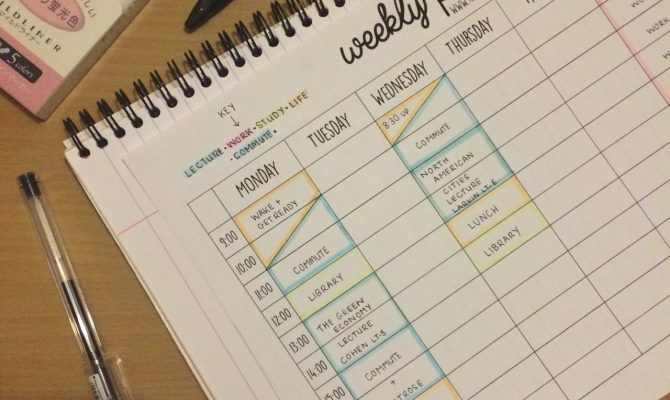 しい
蛍光色
MILDLINER
5 colors
weekly
WWW.
KEY
LECTURE · WORK · STUDY · LIFE
· COMMUTE ·
MONDAY
TUESDAY
WEDNESDAY
THURSDAY
9:00
10:00
11:00
12:00
13:00
14:00
15:00
WAKE +
GET READY
COMMUTE
LIBRARY
THE GREEN
ECONOMY
LECTURE
COHEN LT-3
COMMUTE
+
8:30 UP
COMMUTE
NORTH
AMERICAN
CITIES
LECTURE
LARKIN LT-E
LUNCH
LIBRARY
WORK